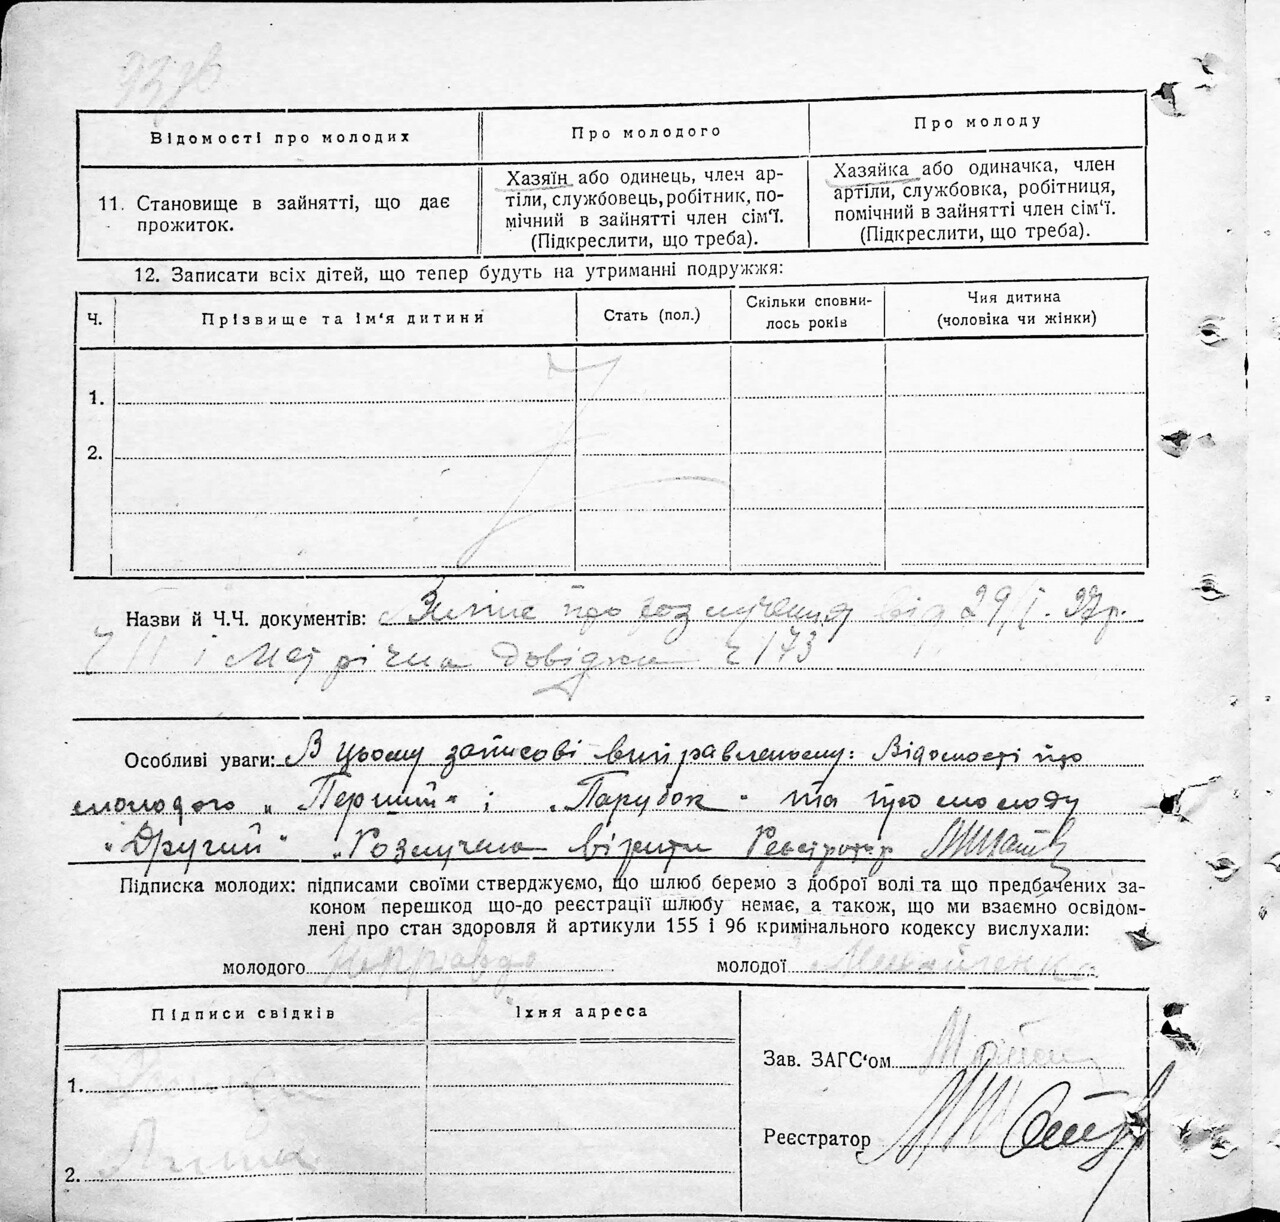 Відомості про молодих
Про молодого
Про молоду
11. Становище в зайнятті, що дає прожиток.
Хазяїн або одинець, член ар-
тіли, службовець, робітник, по-
мічний в зайнятті член сім'ї.
(Підкреслити, що треба).
Хазяйка або одиначка, член
артіли, службовка, робітниця,
помічний в зайнятті член сім'ї.
(Підкреслити, що треба).
12. Записати всіх дітей, що тепер будуть на утриманні подружжя:
Ч.
Прізвище та ім'я дитини
Стать (пол.)
Скільки сповни-
лось років
Чия дитина
(чоловіка чи жінки)
1.
2.
Назви й Ч.Ч. документів: про розлучення від 29/І.
і Метрічна довідка ч 173
Особливі уваги: В цьому записові виправленому: Відомості про
молодого „Перший“ і „Парубок“ та про молоду
„Другий“ „Розлучена вірити Реєстратор
Підписка молодих: підписами своїми стверджуємо, що шлюб беремо з доброї волі та що предбачених за-
коном перешкод що-до реєстрації шлюбу немає, а також, що ми взаємно освідом-
лені про стан здоровля й артикули 155 і 96 кримінального кодексу вислухали:
молодого
молодої
Підписи свідків
Їхня адреса
1.
2.
Зав. ЗАГС'ом
Реєстратор